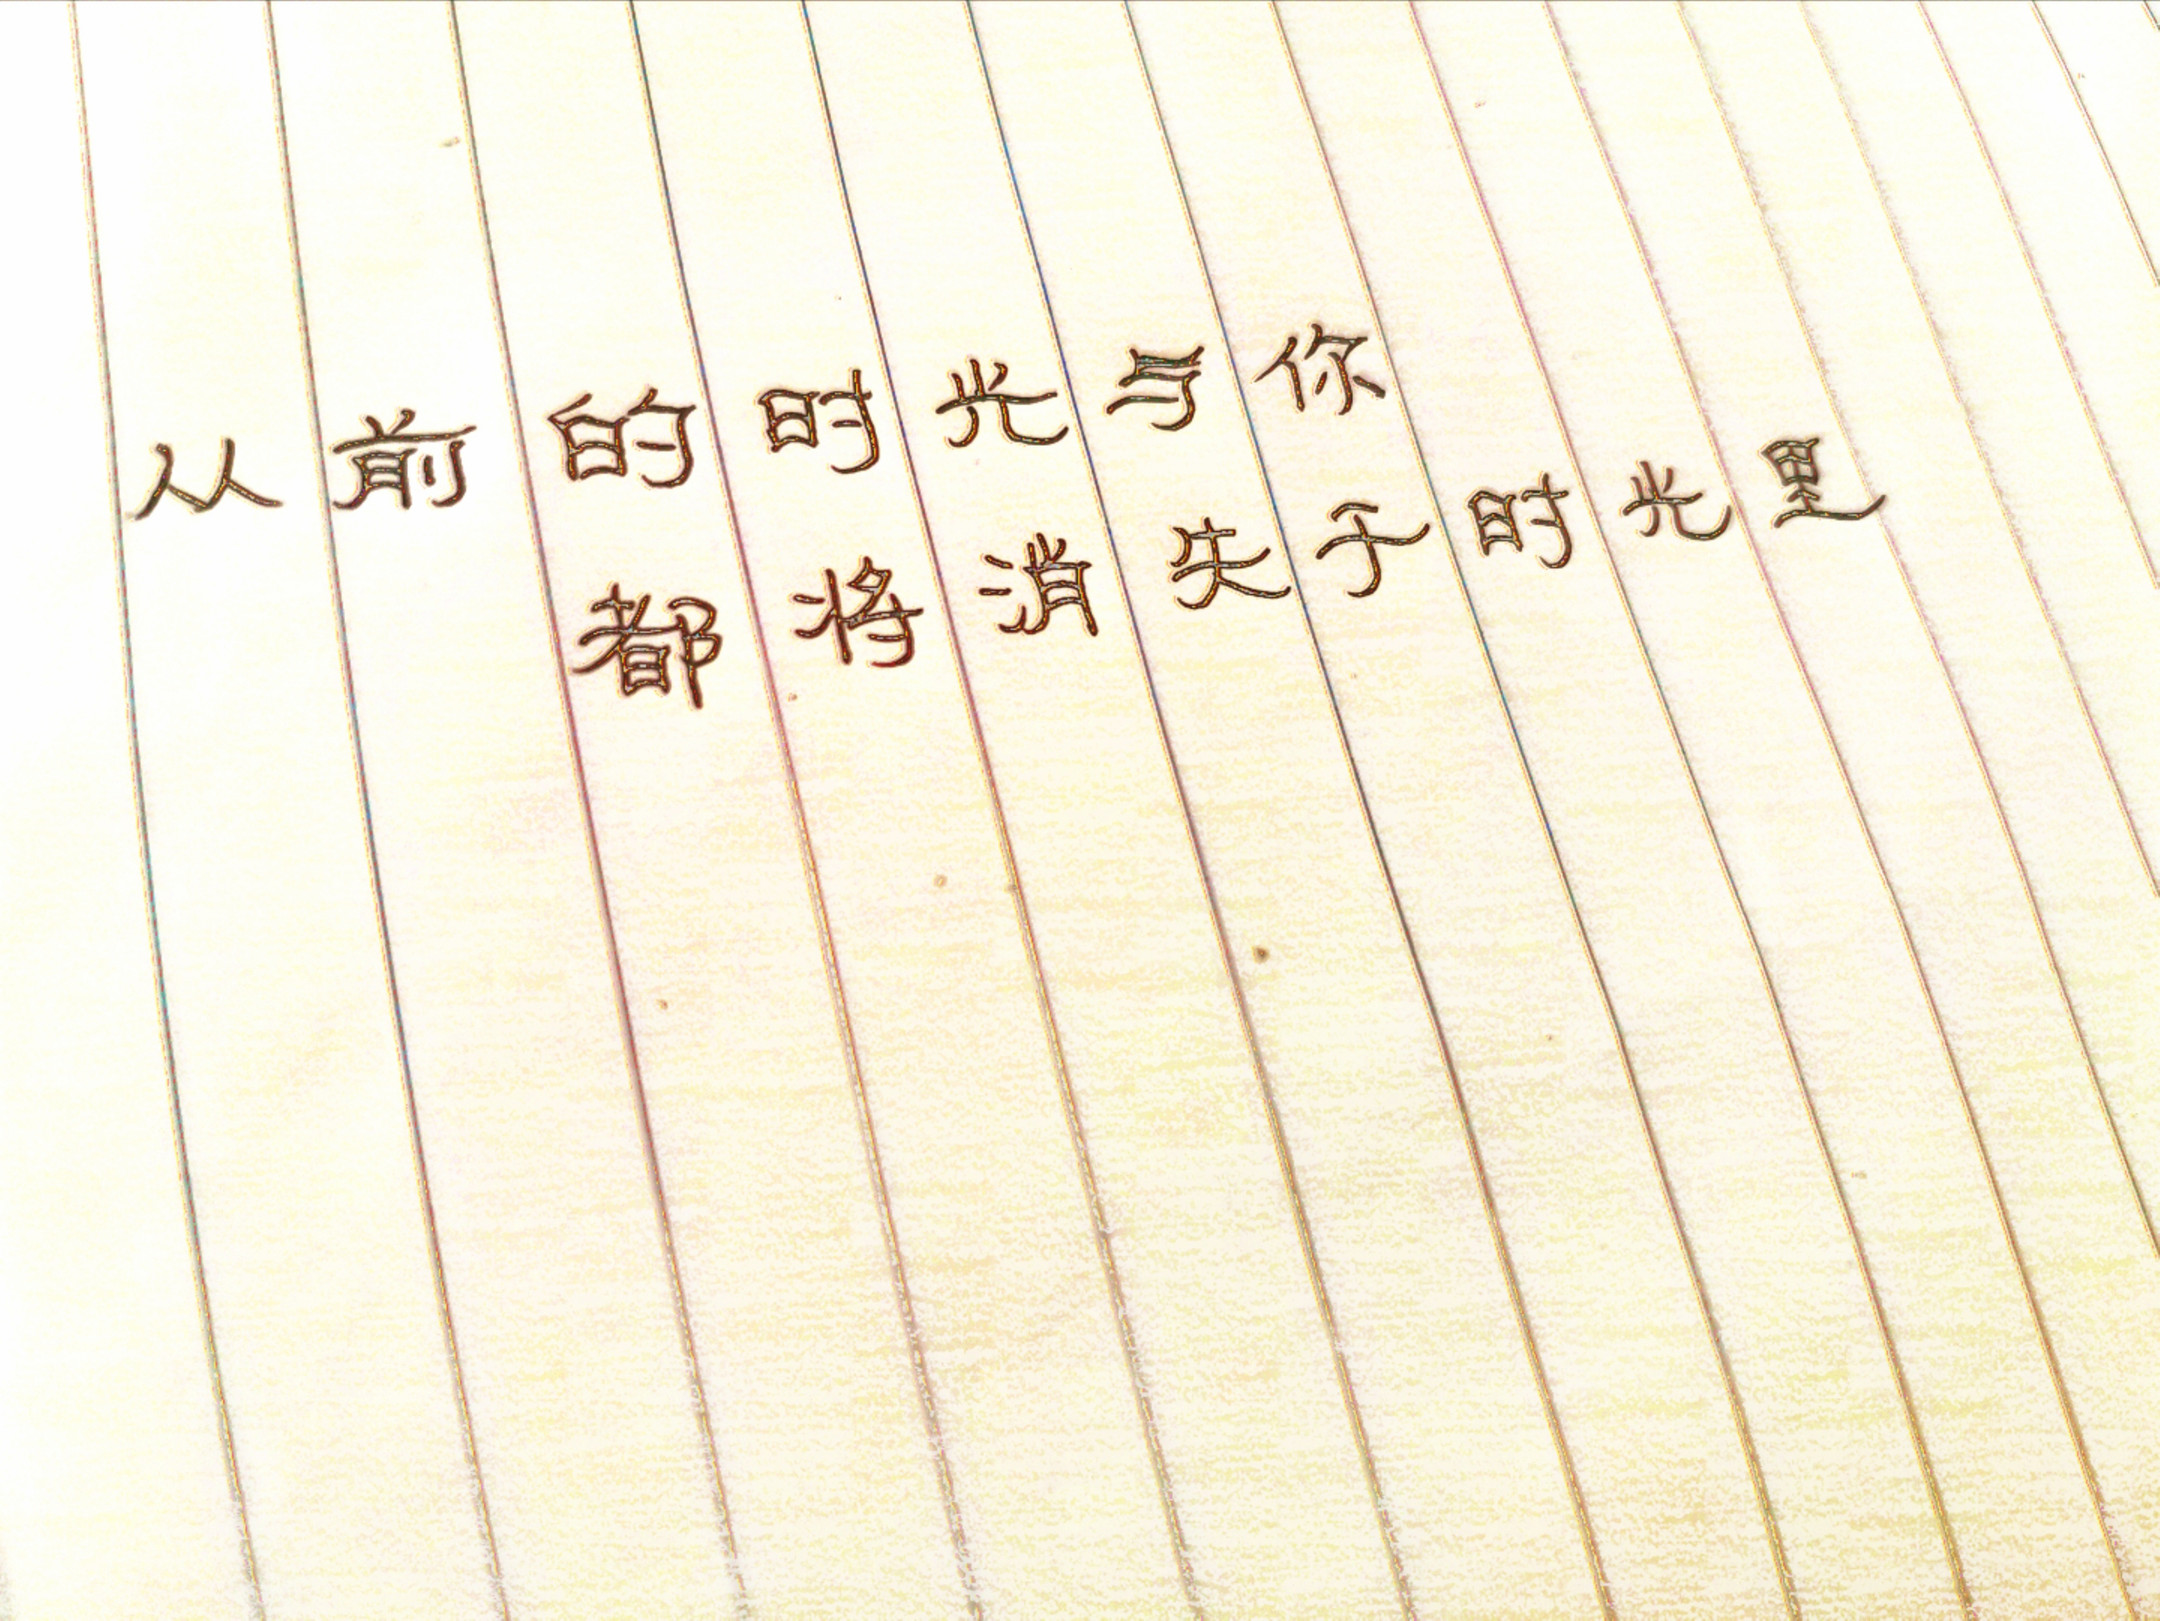 从前的时光与你
都将消失于时光里